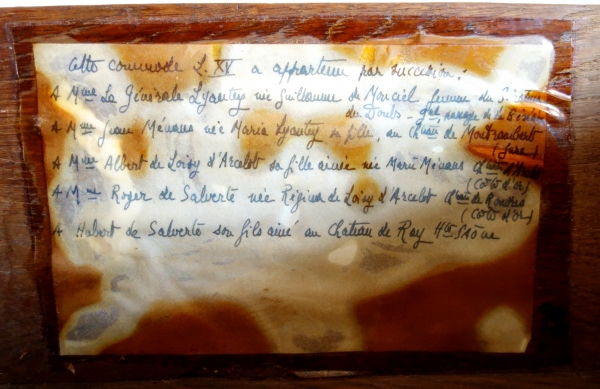 Cette commode L. XV a appartenu par succession :
A Mme La Générale Lyautey née Guillaume de Monciel, femme du
du Doubs -
A Mme Jean Ménans née Marie Lyautey sa fille, au Chau de Montrambert
(Jura)
A Mme Albert de Loisy d'Arcelot sa fille ainée née Marie Ménans Chau
(Cote d'or)
A Mme Roger de Salverte née Régina de Loisy d'Arcelot Chau de
(Cote d'Or)
A Hubert de Salverte son fils ainé au Chateau de Ray Hte Saône